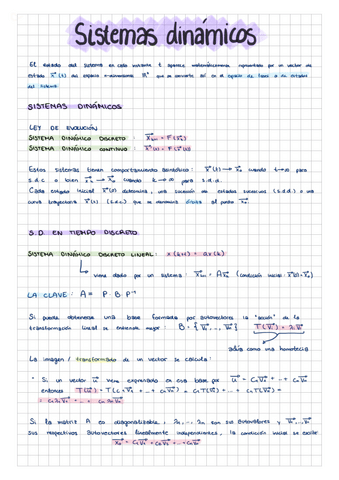 Sistemas dinámicos
El estado del sistema en cada instante t aparece matemáticamente representado por un vector de
estado x⃗(t) del espacio n-dimensional ℝⁿ que se convierte así en el espacio de fases o de estados
del sistema.
SISTEMAS DINÁMICOS
LEY DE EVOLUCIÓN
SISTEMA DINÁMICO DISCRETO : x⃗ₖ₊₁ = F(x⃗ₖ)
SISTEMA DINÁMICO CONTINUO : x⃗'(t) = F(x⃗(t))
Estos sistemas tienen comportamiento asintótico : x⃗(t) → x⃗ cuando t→∞ para
s.d.c o bien x⃗ₖ → x⃗ cuando k → ∞ para s.d.d.
Cada estado inicial x⃗(0) determina, una sucesión de estados sucesivos (s.d.d.) o una
curva trayectoria x⃗(t) (s.d.c) que se denomina órbita al punto x⃗₀.
S.D. EN TIEMPO DISCRETO
SISTEMA DINÁMICO DISCRETO LINEAL : x(k+1) = ax(k)
viene dado por un sistema : x⃗ₖ₊₁ = Ax⃗ₖ (condición inicial : x⃗(0) = x⃗₀)
LA CLAVE : A = P · B · P⁻¹
Si puede obtenerse una base formada por autovectores la "acción" de la
transformación lineal se entiende mejor : B = {v⃗₁, ..., v⃗ₙ} T(v⃗ᵢ) = λᵢv⃗ᵢ
actúa como una homotecia
La imagen / transformado de un vector se calcula :
* Si un vector u⃗ viene expresado en esa base por u⃗ = c₁v⃗₁ + ... + cₙv⃗ₙ
entonces T(u⃗) = T(c₁v⃗₁ + ... + cₙv⃗ₙ) = c₁T(v⃗₁) + ... + cₙT(v⃗ₙ) =
= c₁λ₁v⃗₁ + ... + cₙλₙv⃗ₙ
Si la matriz A es diagonalizable , λ₁, ..., λₙ son sus autovalores y v⃗₁, ..., v⃗ₙ
sus respectivos autovectores linealmente independientes, la condición inicial se escribe
x⃗₀ = c₁v⃗₁ + c₂v⃗₂ + ... + cₙv⃗ₙ